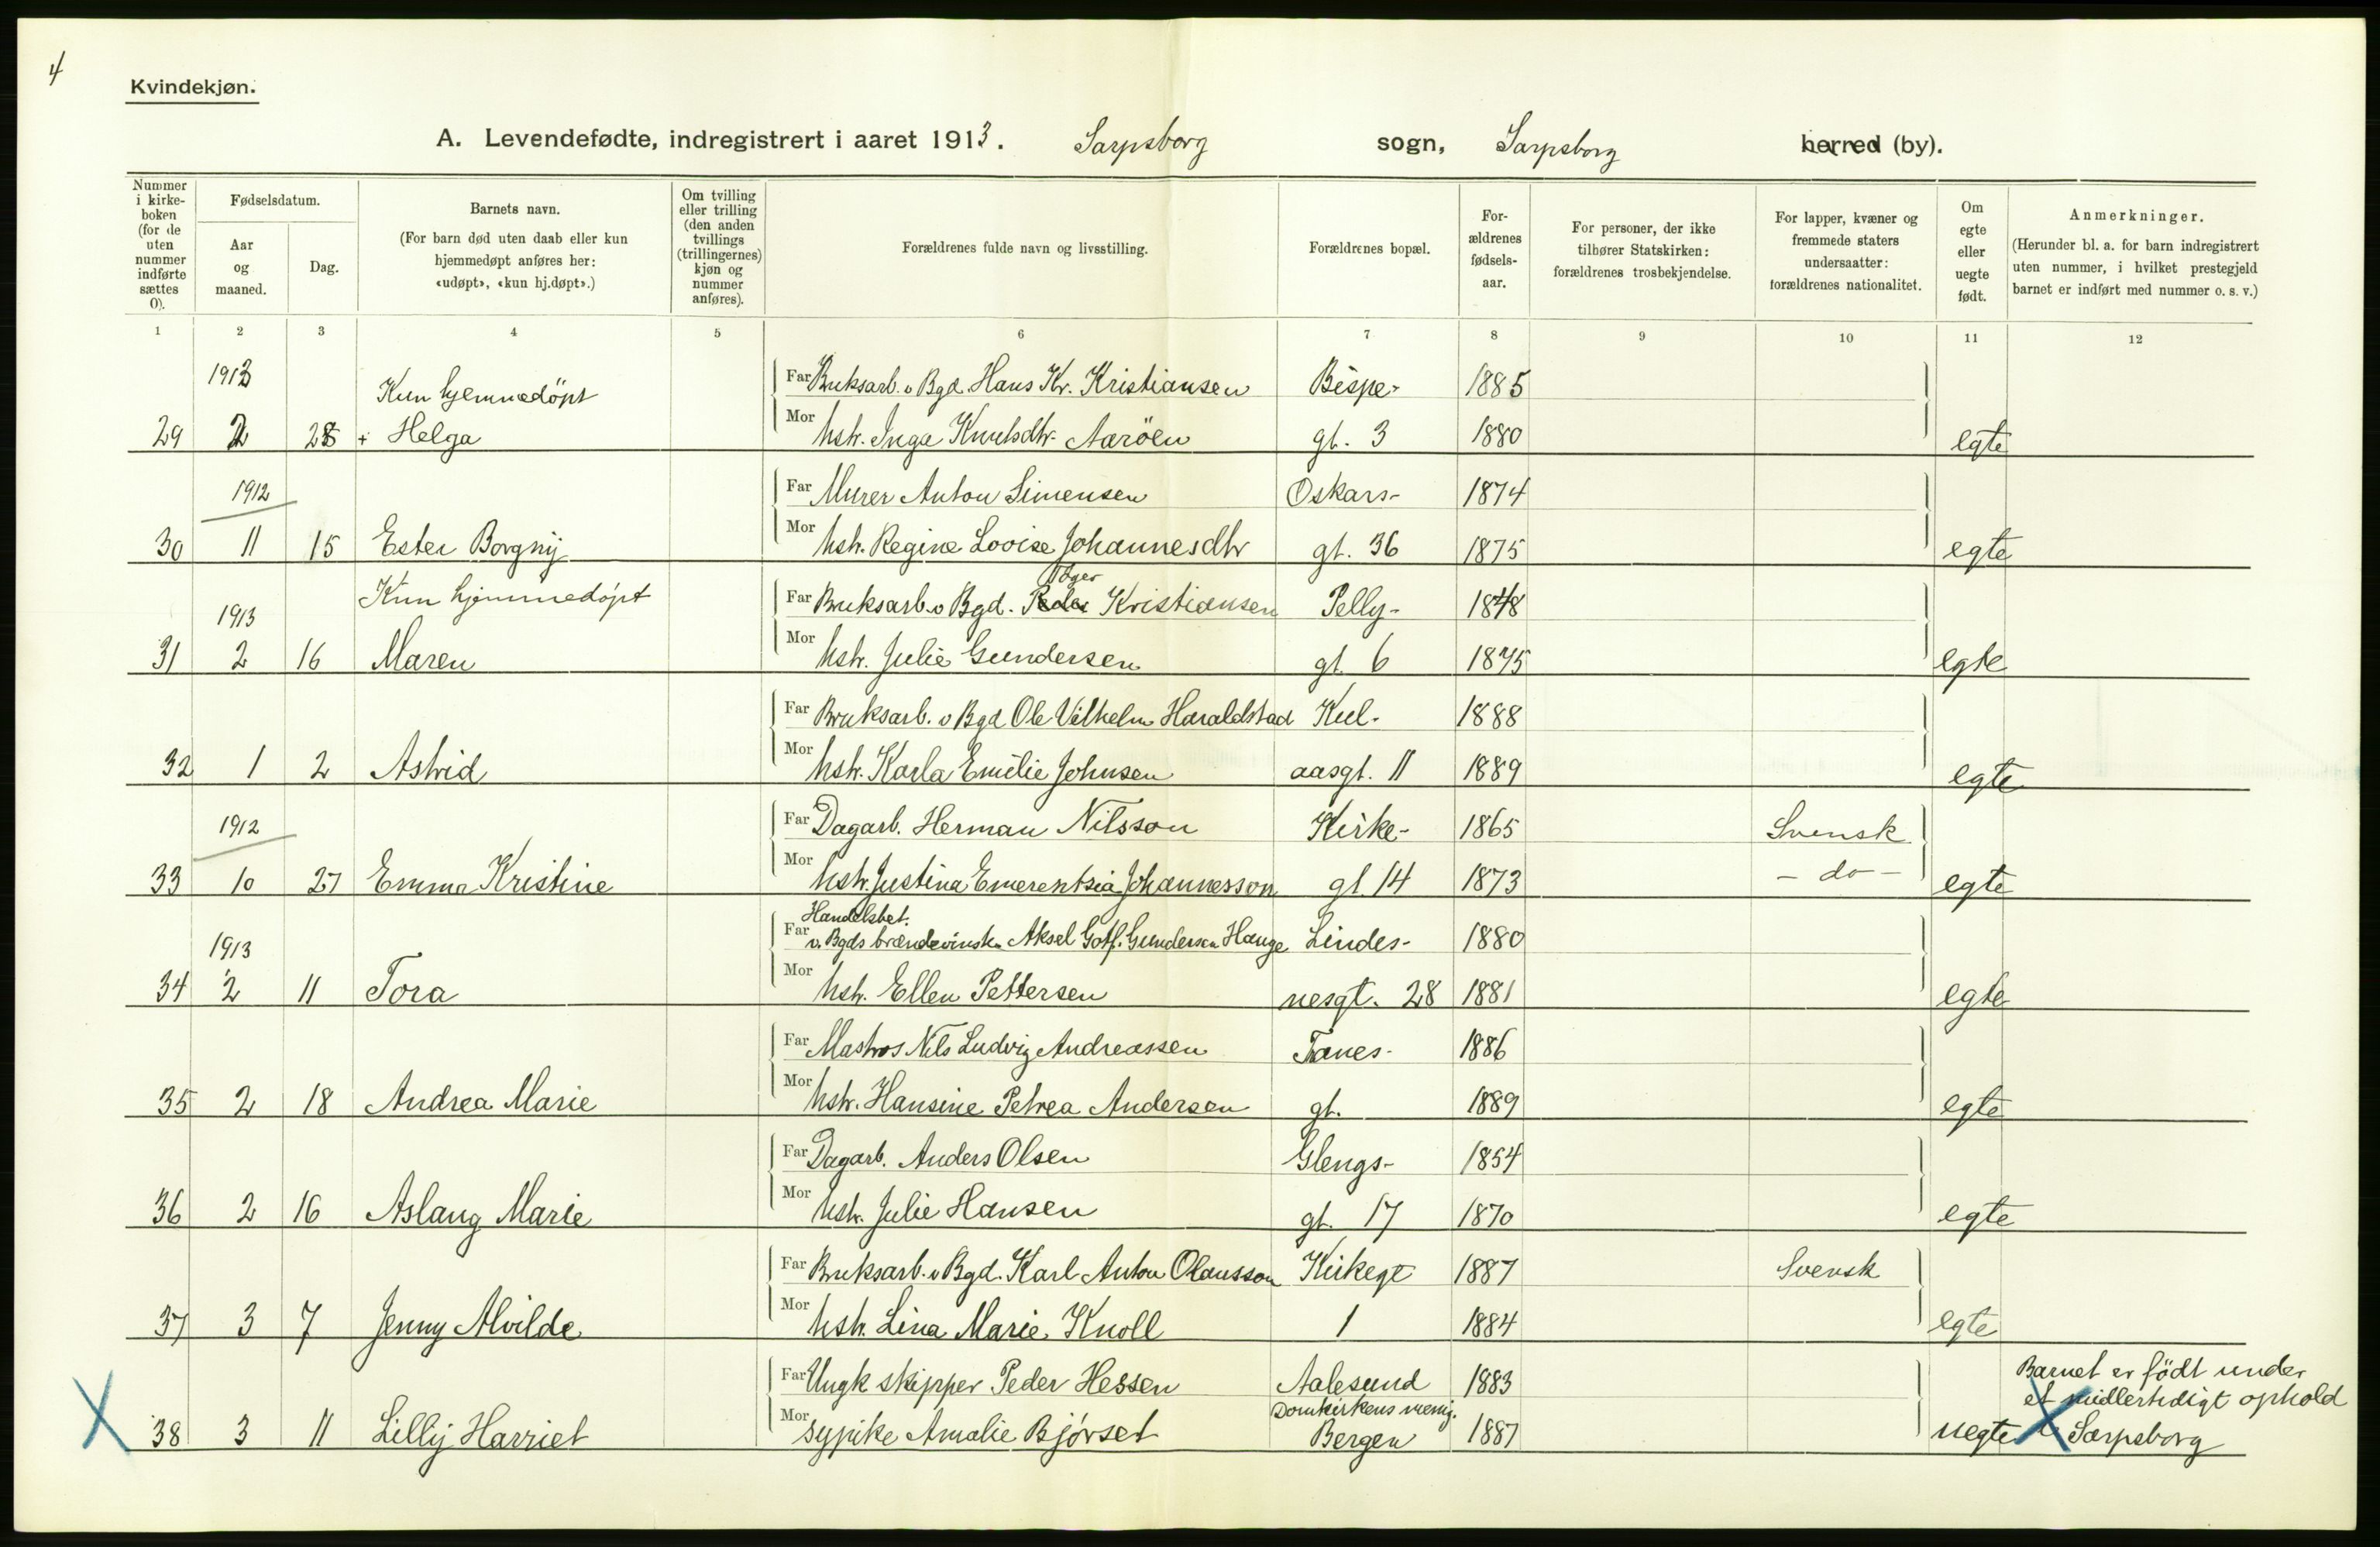 4
Kvindekjøn.
A. Levendefødte, indregistrert i aaret 1913. Sarpsborg sogn, Sarpsborg herred (by).
Nummer i kirkeboken (for de uten nummer indførte sættes 0).
Fødselsdatum.
Aar og maaned.
Dag.
Barnets navn.
(For barn død uten daab eller kun hjemmedøpt anføres her: «udøpt», «kun hj.døpt».)
Om tvilling eller trilling (den anden tvillings (trillingernes) kjøn og nummer anføres).
Forældrenes fulde navn og livsstilling.
Forældrenes bopæl.
Forældrenes fødselsaar.
For personer, der ikke tilhører Statskirken: forældrenes trosbekjendelse.
For lapper, kvæner og fremmede staters undersaatter: forældrenes nationalitet.
Om egte eller uegte født.
Anmerkninger.
(Herunder bl. a. for barn indregistrert uten nummer, i hvilket prestegjeld barnet er indført med nummer o. s. v.)
1 2 3 4 5 6 7 8 9 10 11 12
1913 Kun hjemmedöpt Far Bruksarb. v Bgd. Hans Kr. Kristiansen Bispe- 1885
29 2 28 + Helga Mor hstr. Inga Knutsdtr. Aaröen gt. 3 1880 egte
1912 Far Murer Anton Simensen Oskars- 1874
30 11 15 Ester Borgny Mor hstr. Regine Lovise Johannesdtr gt. 36 1875 egte
Kun hjemmedöpt
1913 Far Bruksarb. v Bgd. Peder Kristiansen Pelly- 1848
31 2 16 Maren Mor hstr. Julie Gundersen gt. 6 1875 egte
Far Bruksarb. v Bgd Ole Vilhelm Haraldstad Kul- 1888
32 1 2 Astrid Mor hstr. Karla Emilie Johnsen aasgt. 11 1889 egte
1912 Far Dagarb. Herman Nilsson Kirke- 1865 Svensk
33 10 27 Emma Kristine Mor hstr. Justina Emerentsia Johannesson gt 14 1873 - do - egte
Handelsbet.
1913 Far v. Bgds brændevinsh. Aksel Gotf. Gundersen Hauge Lindes- 1880
34 2 11 Tora Mor hstr. Ellen Pettersen nesgt. 28 1881 egte
Far Matros Nils Ludvig Andreassen Tanes- 1886
35 2 18 Andrea Marie Mor hstr. Hansine Petrea Andersen gt. 1889 egte
Far Dagarb. Anders Olsen Glengs- 1854
36 2 16 Aslaug Marie Mor hstr. Julie Hansen gt. 17 1870 egte
Far Bruksarb. v Bgd. Karl Anton Olausson Kirkegt 1887 Svensk
37 3 7 Jenny Alvilde Mor hstr. Lina Marie Knoll 1 1884 egte
Far Ungk skipper Peder Hessen Aalesund 1883 Barnet er födt under
Domkirkens menig. et midlertidigt ophold
38 3 11 Lilly Harriet Mor sypike Amalie Bjørset Bergen 1887 uegte i Sarpsborg